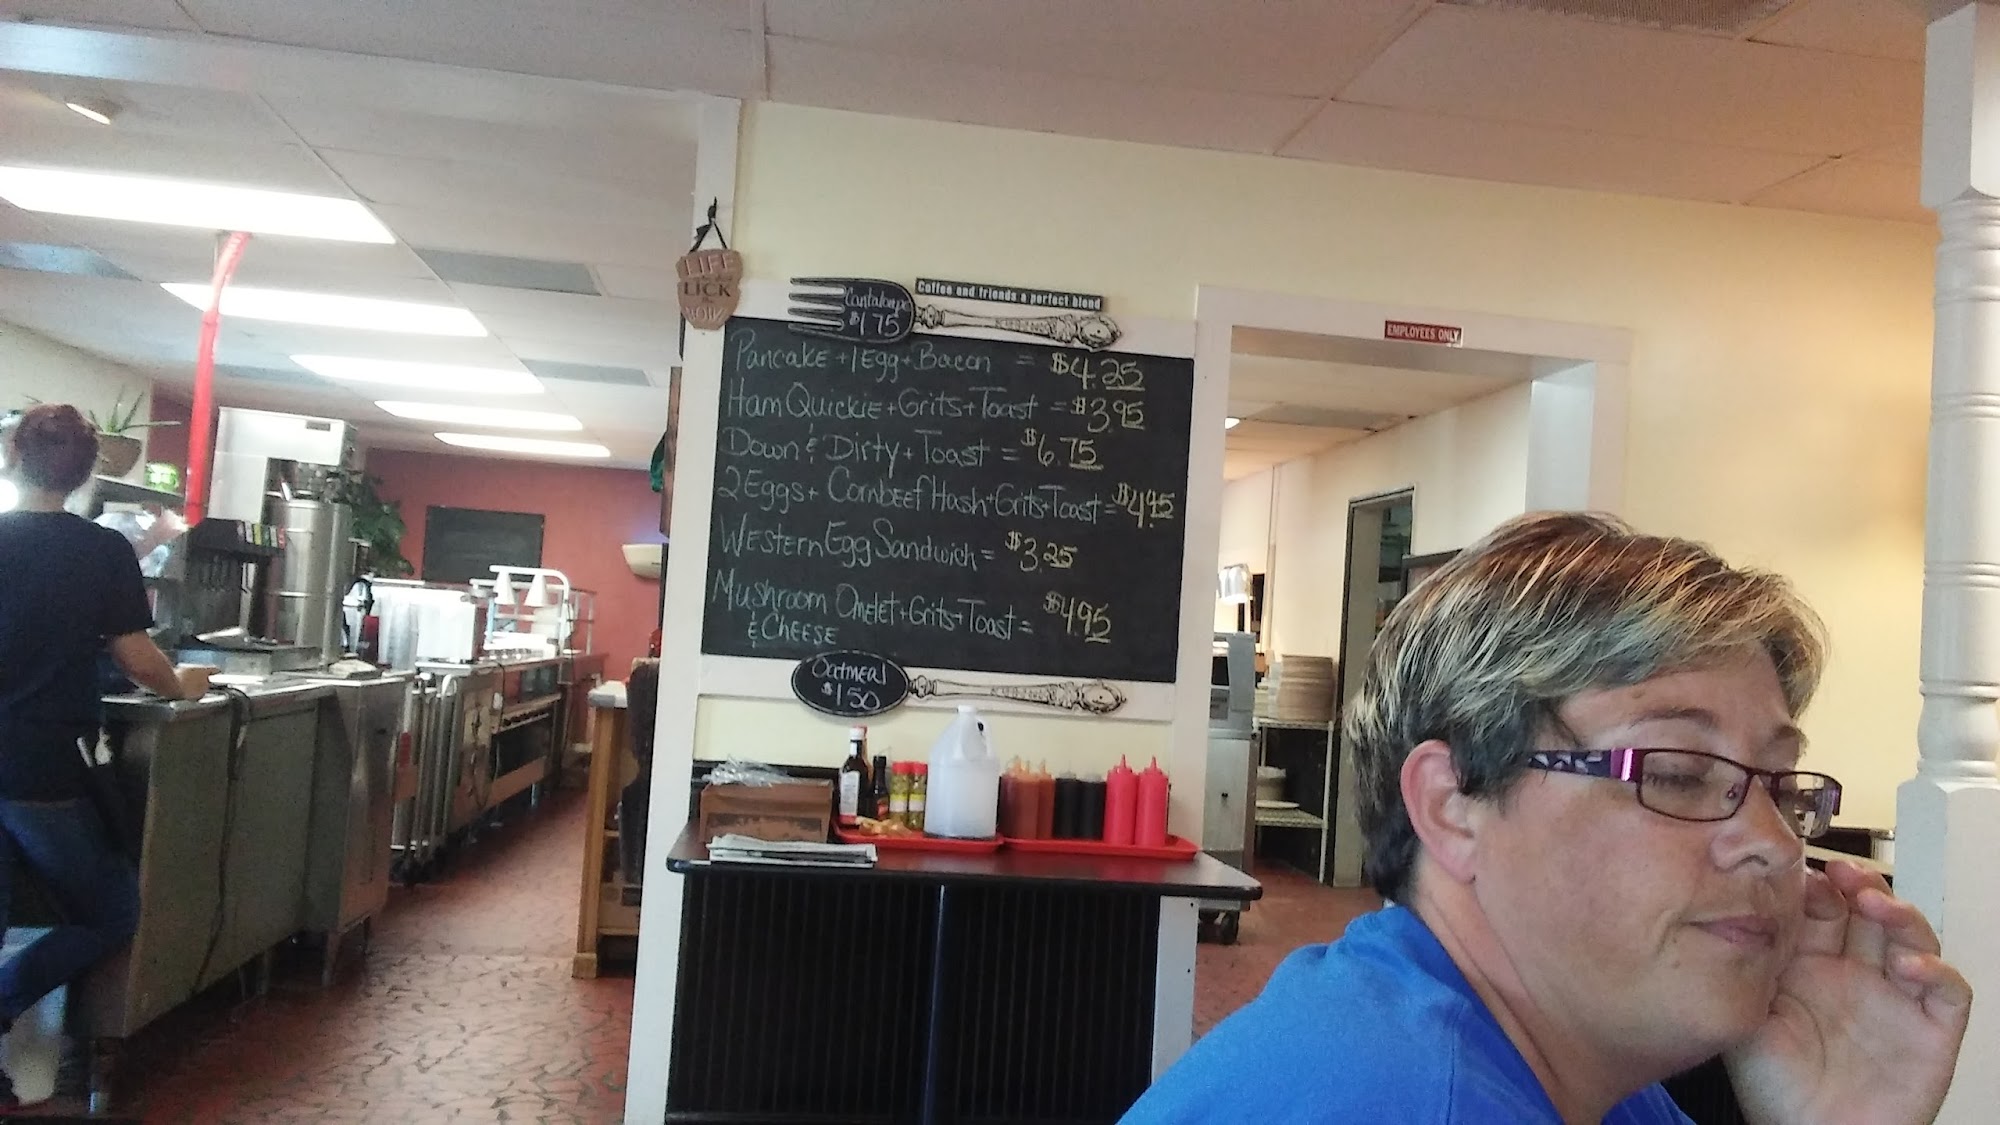 LIFE
LICK
Cantaloupe
$1.75
Coffee and friends a perfect blend
EMPLOYEES ONLY
Pancake + 1 Egg + Bacon = $4.25
Ham Quickie + Grits + Toast = $3.95
Down & Dirty + Toast = $6.75
2 Eggs + Cornbeef Hash + Grits + Toast = $4.45
Western Egg Sandwich = $3.25
Mushroom Omelet + Grits + Toast = $4.95
& Cheese
Oatmeal
$1.50